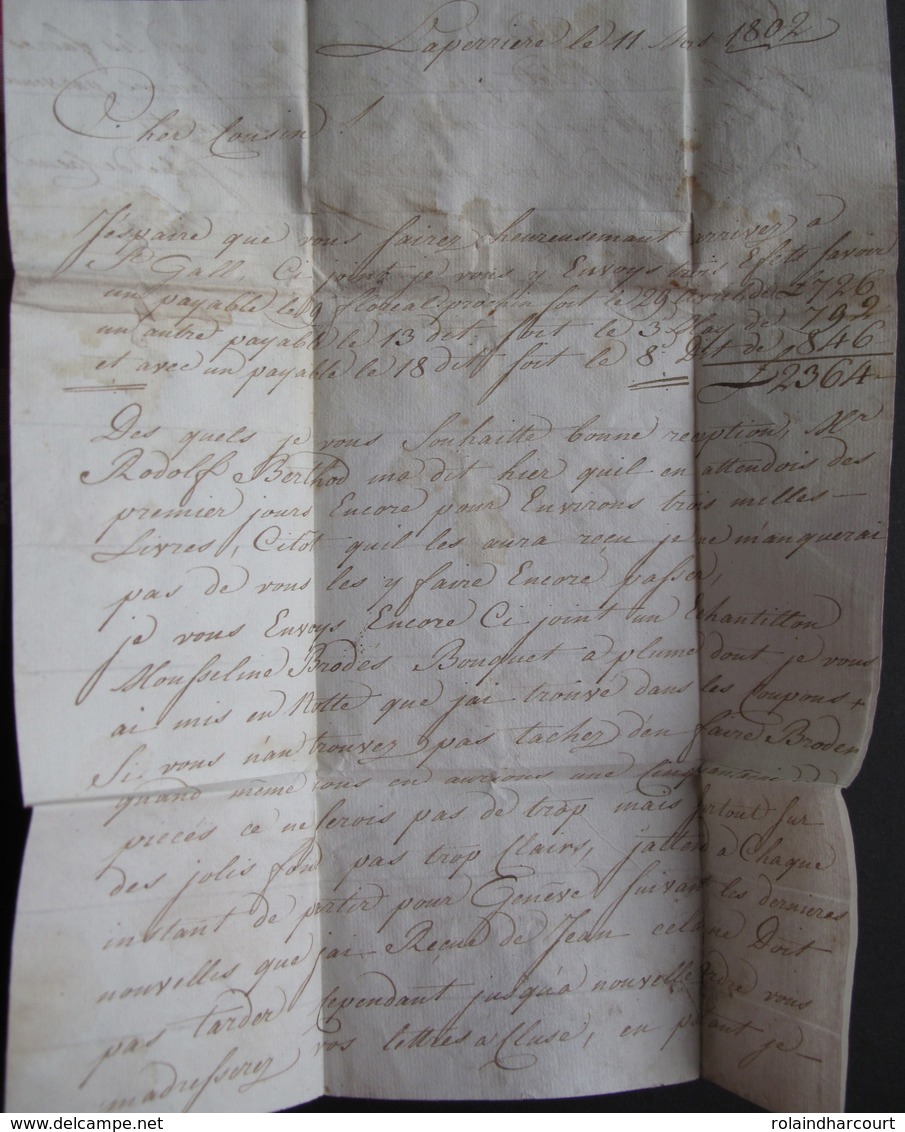 Laperriere le 11 Mars 1802
Cher Cousin !
J'éspaire que vous fairez heureusemant arrivez a
St Gall, Ci joint je vous y Envoys trois Efets savoir
un payable le 9 floreal prochin soit le 29 avril de L 726
un autre payable le 13 dit soit le 3 May de 792
et avec un payable le 18 dit soit le 8 Dit de 846
L 2364
Des quels je vous Souhaitte bonne reception, Mr
Rodolf Berthod ma dit hier quil en attendois des
premier jours Encore pour Environs trois milles
Livres, Citôt quil les aura reçu je ne m'anquerai
pas de vous les y faire Encore passer,
je vous Envoys Encore Ci joint un Echantillon
Mousseline Brodés Bouquet a plume dont je vous
ai mis en Notte que jai trouvé dans les Coupons
Si vous n'an trouvez pas tachez d'en faire Broder
quand même vous en aurions une Cinquantain
pieces ce ne serois pas de trop mais surtout sur
des jolis fond pas trop Clairs, j'attend a Chaque
instant de partir pour Genêve suivant les dernieres
nouvelles que jai Reçue de Jean cela ne Doit
pas tarder Cependant jusqu'a nouvelle ordre vous
madresserez vos lettres a Cluse, en partant je
rolaindharcourt
www.delcampe.net